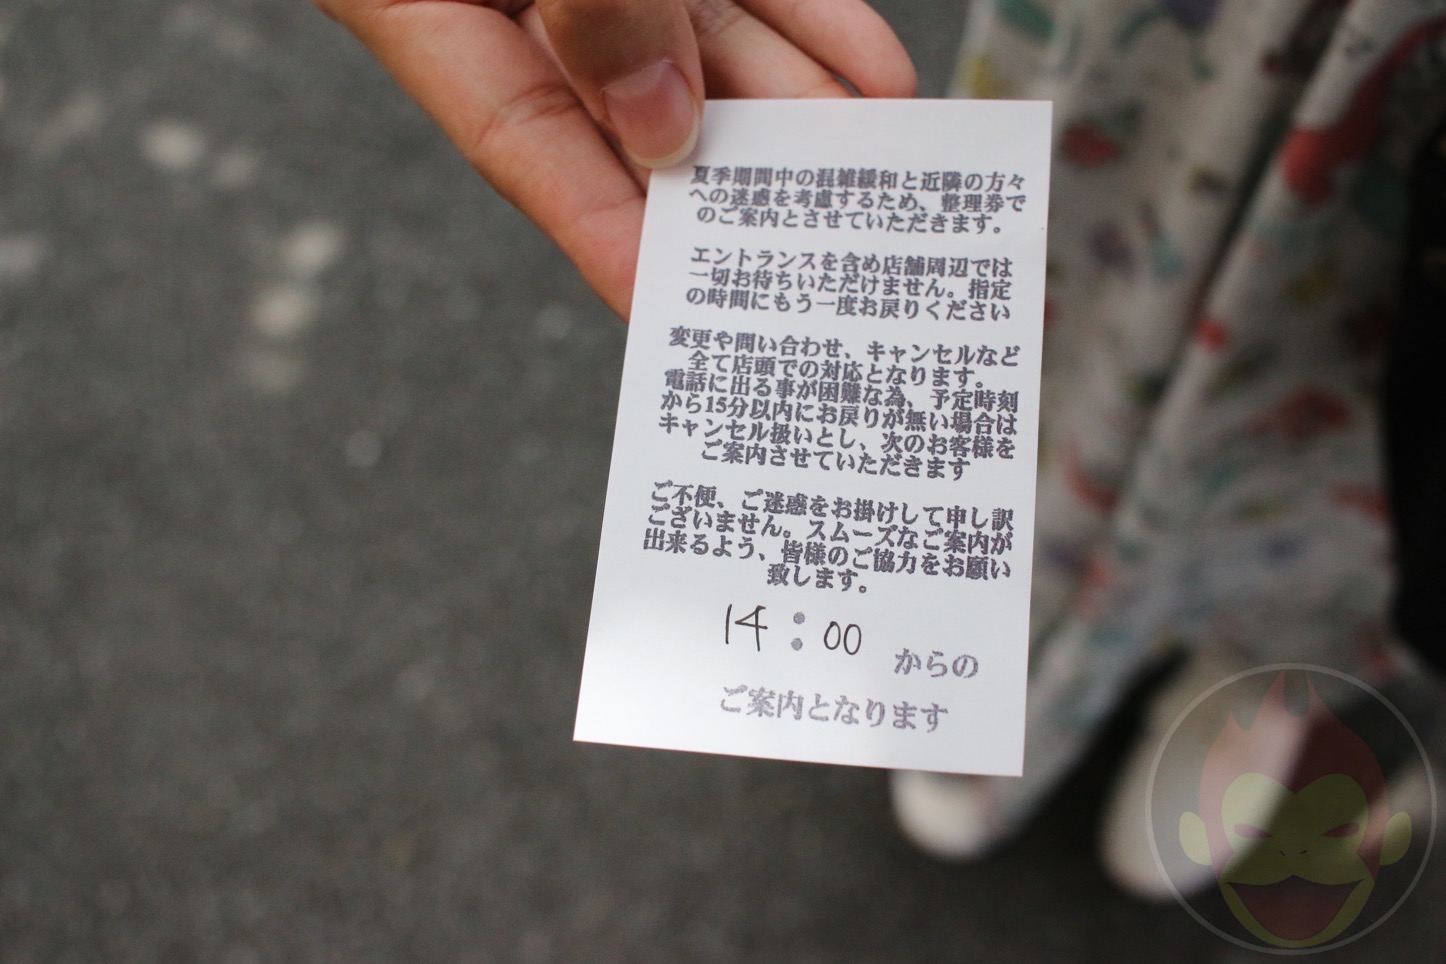 夏季期間中の混雑緩和と近隣の方々
への迷惑を考慮するため、整理券で
のご案内とさせていただきます。
エントランスを含め店舗周辺では
一切お待ちいただけません。指定
の時間にもう一度お戻りください
変更や問い合わせ、キャンセルなど
全て店頭での対応となります。
電話に出る事が困難な為、予定時刻
から15分以内にお戻りが無い場合は
キャンセル扱いとし、次のお客様を
ご案内させていただきます
ご不便、ご迷惑をお掛けして申し訳
ございません。スムーズなご案内が
出来るよう、皆様のご協力をお願い
致します。
14:00 からの
ご案内となります